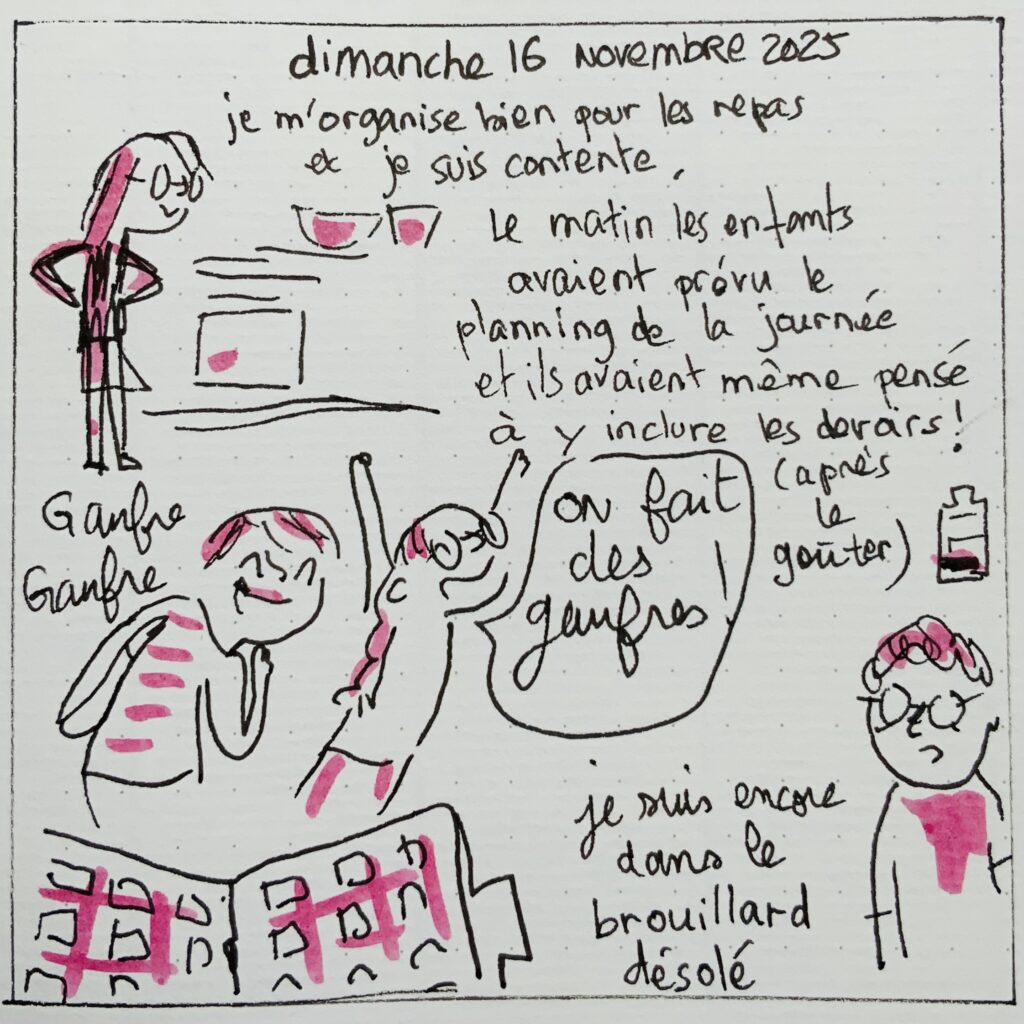 dimanche 16 novembre 2025
je m'organise bien pour les repas
et je suis contente.
Le matin les enfants
avaient prévu le
planning de la journée
et ils avaient même pensé
à y inclure les devoirs !
(après
le
goûter)
Gaufre
Gaufre
on fait
des
gaufres !
je suis encore
dans le
brouillard
désolé